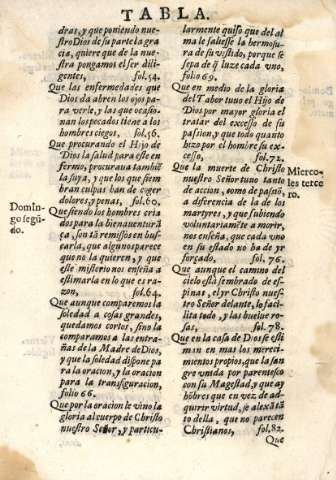 TABLA.
dras, y que poniendo nue-
stro Dios de su parte la gra
cia, quiere que de la nue-
stra pongamos el ser dili
gentes, fol.54.
Que las enfermedades que
Dios da abren los ojos pa-
ra verle, y las que ocasio-
nan los pecados tiene a los
hombres ciegos, fol.56.
Que procurando el Hijo de
Dios la salud para este en
fermo, procuraua tambiẽ
la suya, y que los que siem
bran culpas han de coger
dolores, y penas, fol.60.
Domin-
go segũ-
do.
Que siendo los hombres cria
dos para la bienauenturã
ça, son tã remissos en bus-
carla, que algunos parece
que no la quieren, y que
este misterio nos enseña a
estimarla en lo que es ra-
zon, fol.64.
Que aunque comparemos la
soledad a cosas grandes,
quedamos cortos, sino la
comparamos a las entra-
ñas de la Madre de Dios,
y que la soledad dispone pa
ra la oracion, y la oracion
para la transfiguracion,
folio 66.
Que por la oracion le vino la
gloria al cuerpo de Christo
nuestro Señor, y particu-
larmente quiso que del al
ma le saliesse la hermosu-
ra de su vestido, porque se
sepa de q̃ luze cada vno,
folio 69.
Que en medio de la gloria
del Tabor tuuo el Hijo de
Dios por mayor gloria el
tratar del excesso de su
passion, y que todo quanto
hizo por el hombre su ex-
cesso, fol.72.
Mierco-
les terce
ro.
Que la muerte de Christo
nuestro Señor tuuo tanto
de accion, como de passiõ,
a diferencia de la de los
martyres, y que subiendo
voluntariamẽte a morir,
nos enseña, que cada vno
en su estado no ha de yr
forçado. fol. 76.
Que aunque el camino del
cielo està sembrado de es-
pinas, el yr Christo nuestro
Señor delante, le faci-
lita todo, y las buelue ro-
sas, fol.78.
Que en la casa de Dios se esti
min en mas los mereci-
mientos propios, que la san
gre vnida por parentesco
con su Magestad, y que ay
hõbres que en vez de ad-
quirir virtud, se alexã tã
to della, que no parecen
Christianos, fol.82.
Que